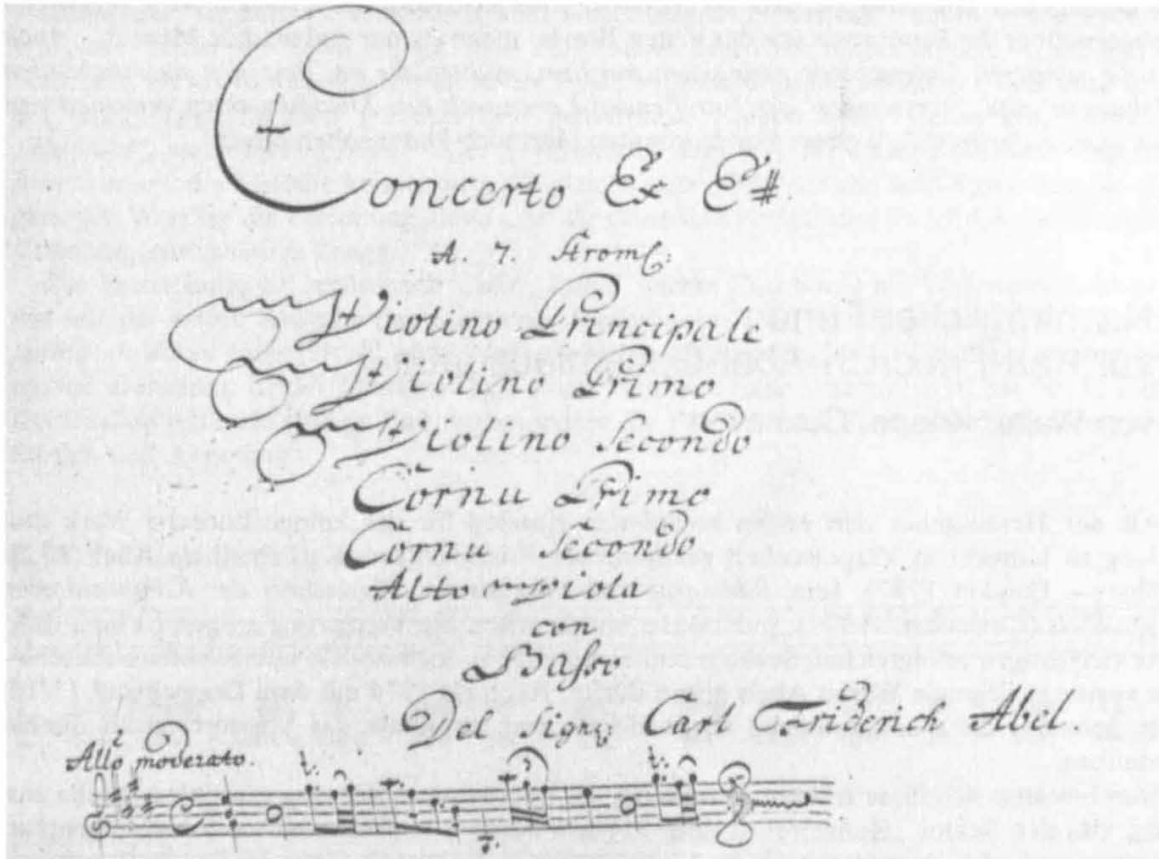 Concerto Ex E#
A. 7. Strom:
Violino Principale
Violino Primo
Violino Secondo
Cornu Primo
Cornu Secondo
Alto Viola
con
Basso
Del Sigr: Carl Friderich Abel
Allo moderato.